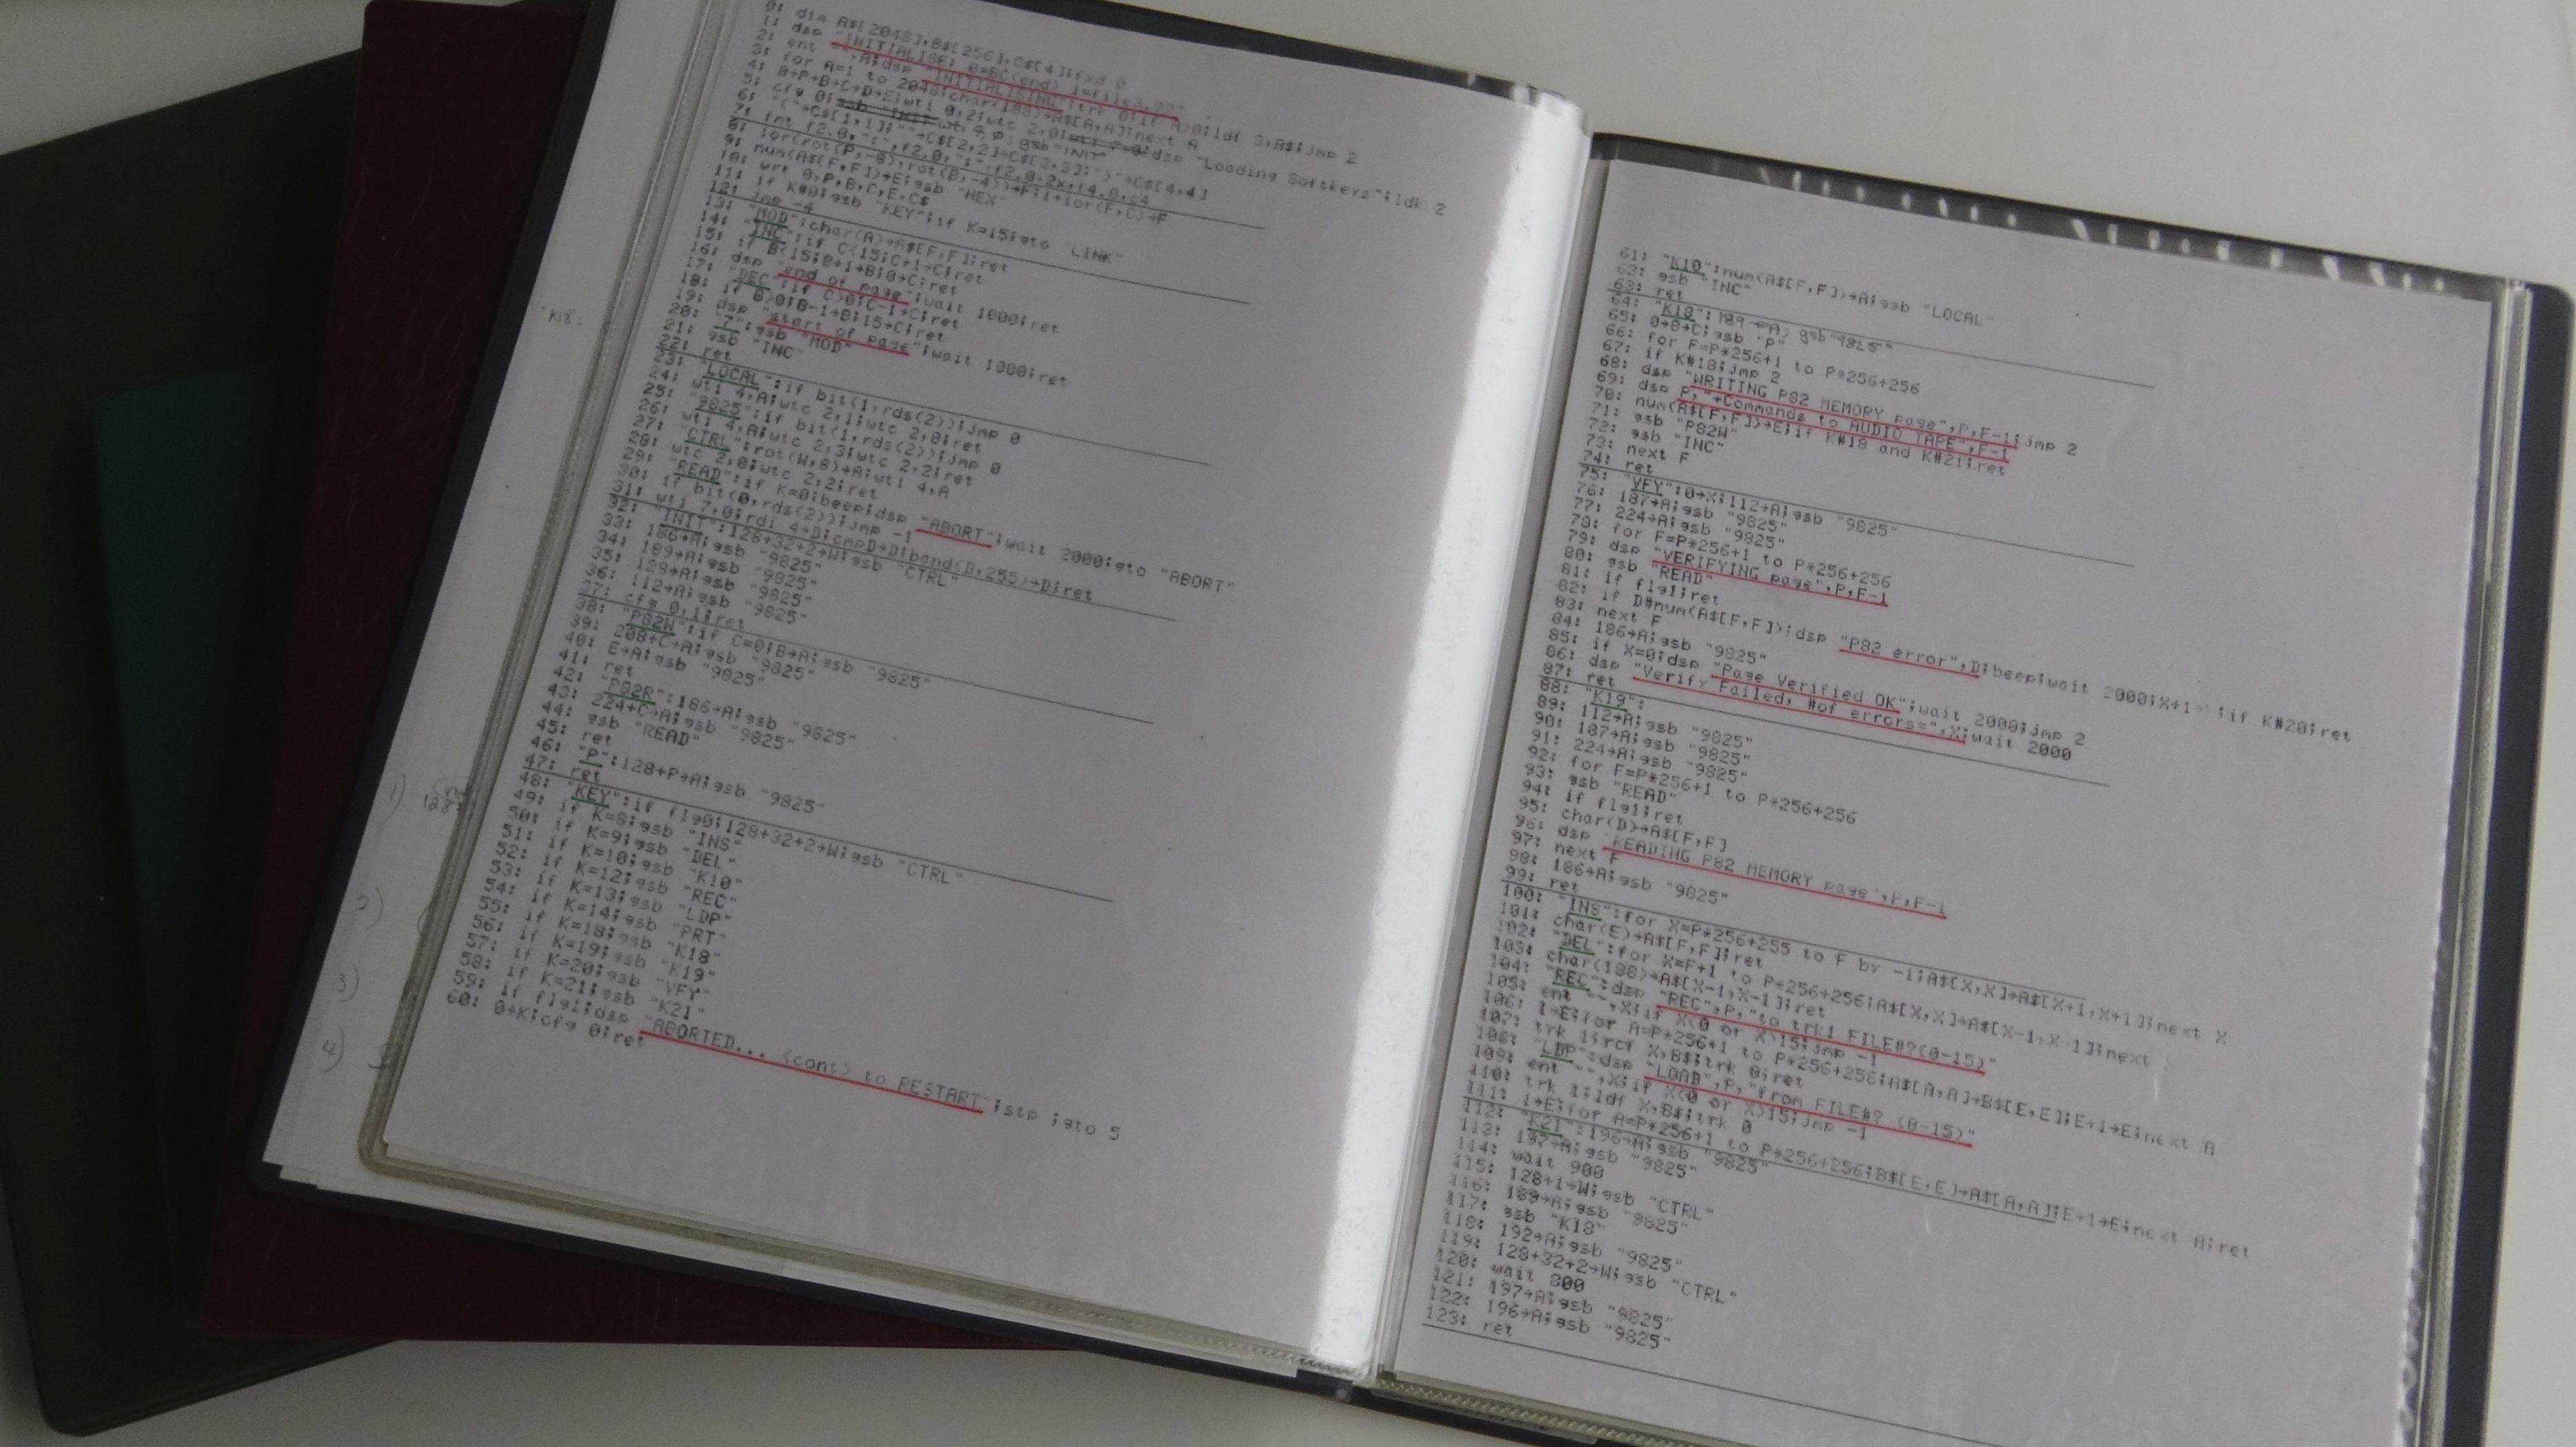 0: dim A$[2048],B$[256],C$[4];fxd 0
1: dsp "INITIALISE: 0=GC(end) 1=file3,??"
2: ent "",A;dsp "INITIALISING";trk 0;if A>0;ldf 3,A$;jmp 2
3: for A=1 to 2048;char(188)→A$[A,A];next A
4: 0→P→B→C→D→E;wti 0,2;wtc 2,0; dsp "Loading Softkeys";ldk 2
5: cfg 0; gsb "INIT"
6: "("→C$[1,1];""→C$[2,2]→C$[3,3];")"→C$[4,4]
7: fmt f2.0,":",f2.0,":",f2.0,2x,f4.0,c4
8: ior(rot(P,-8),rot(B,-4))→F;1+ior(F,C)→F
9: num(A$[F,F])→E;gsb "HEX"
10: wrt 0,P,B,C,E,C$
11: if K#0;gsb "KEY";if K=15;gto "LINK"
12: jmp -4
13: "MOD":char(A)→A$[F,F];ret
14: "INC":if C<15;C+1→C;ret
15: if B<15;B+1→B;0→C;ret
16: dsp "end of page";wait 1000;ret
17: "DEC":if C>0;C-1→C;ret
18: if B>0;B-1→B;15→C;ret
19: dsp "start of page";wait 1000;ret
20: "7":gsb "MOD"
21: gsb "INC"
22: ret
23: "LOCAL":if bit(1,rds(2));jmp 0
24: wti 4,A;wtc 2,1;wtc 2,0;ret
25: "9825":if bit(1,rds(2));jmp 0
26: wti 4,A;wtc 2,3;wtc 2,2;ret
27: "CTRL":rot(W,8)→A;wti 4,A
28: wtc 2,0;wtc 2,2;ret
29: "READ":if K=0;beep;dsp "ABORT";wait 2000;gto "ABORT"
30: if bit(0,rds(2));jmp -1
31: wti 7,0;rdi 4→D;cmpD→D;band(D,255)→D;ret
32: "INIT":128+32+2→W;gsb "CTRL"
33: 186→A;gsb "9825"
34: 189→A;gsb "9825"
35: 128→A;gsb "9825"
36: 112→A;gsb "9825"
37: cfg 0,1;ret
38: "P82W":if C=0;B→A;gsb "9825"
39: 208+C→A;gsb "9825"
40: E→A;gsb "9825"
41: ret
42: "P82R":186→A;gsb "9825"
43: 224+C→A;gsb "9825"
44: gsb "READ"
45: ret
46: "P":128+P→A;gsb "9825"
47: ret
48: "KEY":if flg0;128+32+2→W;gsb "CTRL"
49: if K=8;gsb "INS"
50: if K=9;gsb "DEL"
51: if K=10;gsb "K10"
52: if K=12;gsb "REC"
53: if K=13;gsb "LDP"
54: if K=14;gsb "PRT"
55: if K=18;gsb "K18"
56: if K=19;gsb "K19"
57: if K=20;gsb "VFY"
58: if K=21;gsb "K21"
59: if flg1;dsp "ABORTED... <cont> to RESTART";stp ;gto 5
60: 0→K;cfg 0;ret
"K18":
1)
2)
3)
4)
61: "K10":num(A$[F,F])→A;gsb "LOCAL"
62: gsb "INC"
63: ret
64: "K18": 189→A; gsb "9825"
65: 0→B→C;gsb "P"
66: for F=P*256+1 to P*256+256
67: if K#18;jmp 2
68: dsp "WRITING P82 MEMORY page",P,F-1;jmp 2
69: dsp P,"+Commands to AUDIO TAPE",F-1
70: num(A$[F,F])→E;if K#18 and K#21;ret
71: gsb "P82W"
72: gsb "INC"
73: next F
74: ret
75: "VFY":0→X;112→A;gsb "9825"
76: 187→A;gsb "9825"
77: 224→A;gsb "9825"
78: for F=P*256+1 to P*256+256
79: dsp "VERIFYING page",P,F-1
80: gsb "READ"
81: if flg1;ret
82: if D#num(A$[F,F]);dsp "P82 error",D;beep;wait 2000;X+1→ ;if K#20;ret
83: next F
84: 186→A;gsb "9825"
85: if X=0;dsp "Page Verified OK";wait 2000;jmp 2
86: dsp "Verify Failed, #of errors=",X;wait 2000
87: ret
88: "K19":
89: 112→A;gsb "9825"
90: 187→A;gsb "9825"
91: 224→A;gsb "9825"
92: for F=P*256+1 to P*256+256
93: gsb "READ"
94: if flg1;ret
95: char(D)→A$[F,F]
96: dsp "READING P82 MEMORY page",P,F-1
97: next F
98: 186→A;gsb "9825"
99: ret
100: "INS":for X=P*256+255 to F by -1;A$[X,X]→A$[X+1,X+1];next X
101: char(E)→A$[F,F];ret
102: "DEL":for X=F+1 to P*256+256;A$[X,X]→A$[X-1,X-1];next
103: char(188)→A$[X-1,X-1];ret
104: "REC":dsp "REC",P,"to trk1 FILE#?(0-15)"
105: ent "",X;if X<0 or X>15;jmp -1
106: 1→E;for A=P*256+1 to P*256+256;A$[A,A]→B$[E,E];E+1→E;next A
107: trk 1;rcf X,B$;trk 0;ret
108: "LDP":dsp "LOAD",P,"from FILE#? (0-15)"
109: ent "",X;if X<0 or X>15;jmp -1
110: trk 1;ldf X,B$;trk 0
111: 1→E;for A=P*256+1 to P*256+256;B$[E,E]→A$[A,A];E+1→E;next A;ret
112: "K21":196→A;gsb "9825"
113: 197→A;gsb "9825"
114: wait 900
115: 128+1→W;gsb "CTRL"
116: 189→A;gsb "9825"
117: gsb "K18"
118: 192→A;gsb "9825"
119: 128+32+2→W;gsb "CTRL"
120: wait 800
121: 197→A;gsb "9825"
122: 196→A;gsb "9825"
123: ret